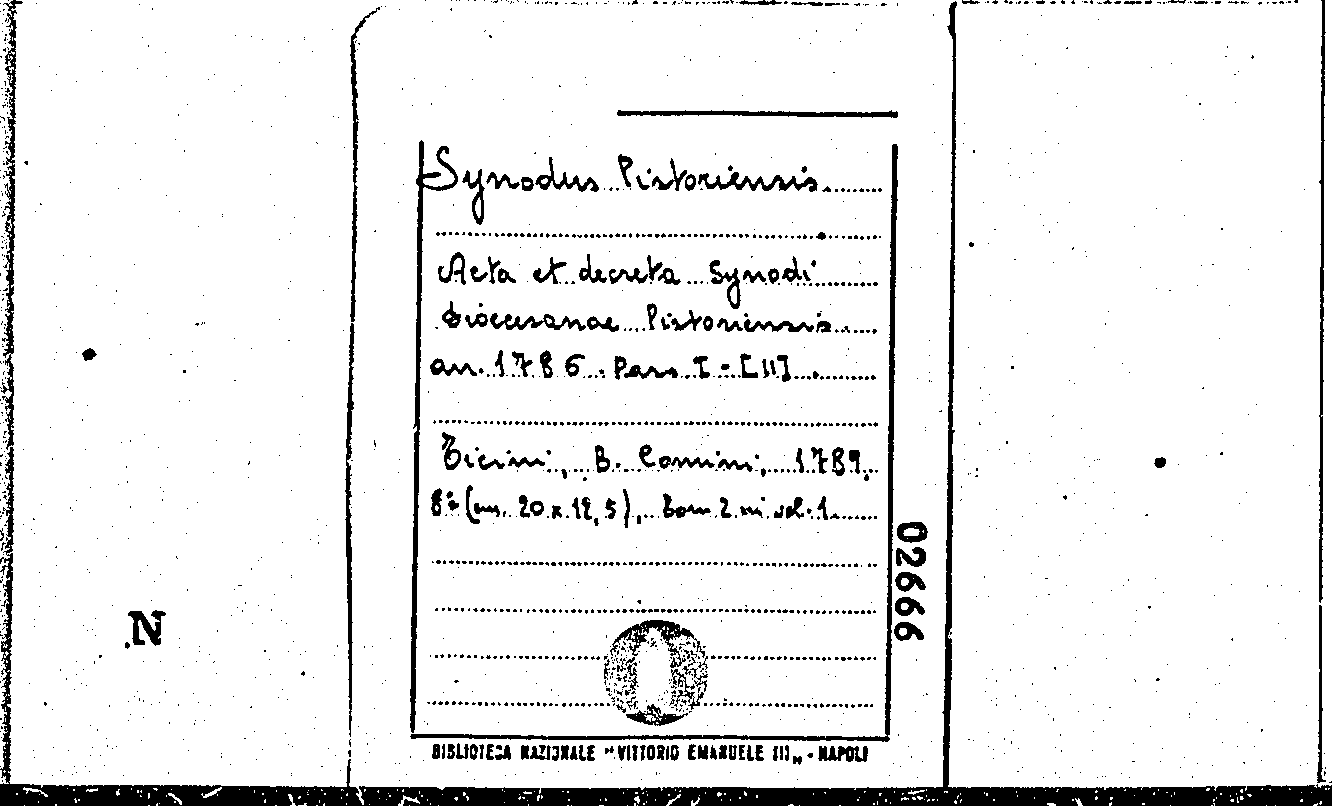 Synodus Pistoriensis
Acta et decreta Synodi
dioecesanae Pistoriensis
an. 1786. Pars I - [II].
Ticini, B. Comini, 1789.
8° (cm. 20 x 12,5), Tom 2 in vol. 1.
02666
N
BIBLIOTECA NAZIONALE "VITTORIO EMANUELE III" - NAPOLI